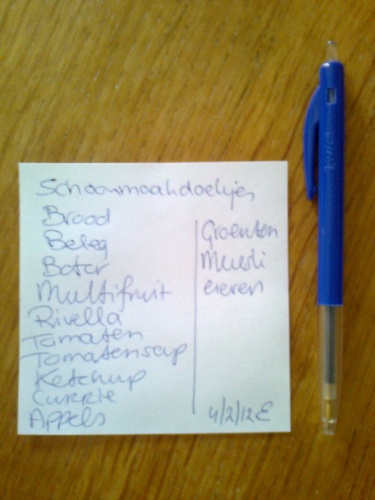 Schoonmaakdoekjes
Brood
Beleg
Boter
Multifruit
Rivella
Tomaten
Tomatensap
Ketchup
Currie
Appels
Groenten
Muesli
eieren
4/2/12 E